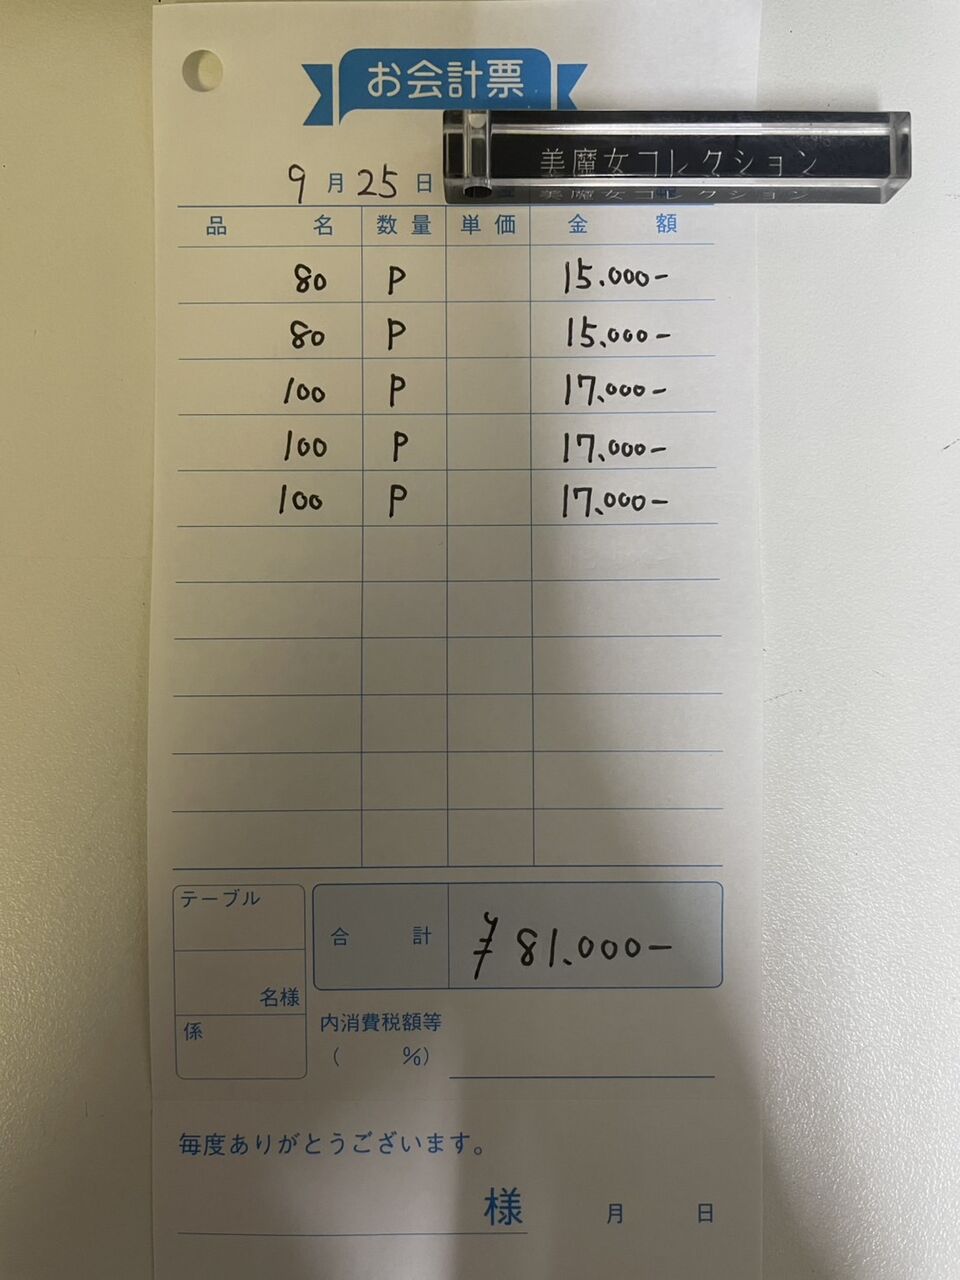 お会計票
美魔女コレクション
美魔女コレクション
9月25日
品名 数量 単価 金額
80 P 15.000-
80 P 15.000-
100 P 17.000-
100 P 17.000-
100 P 17.000-
テーブル
名様
係
合計 ¥81.000-
内消費税額等
( %)
毎度ありがとうございます。
様 月 日